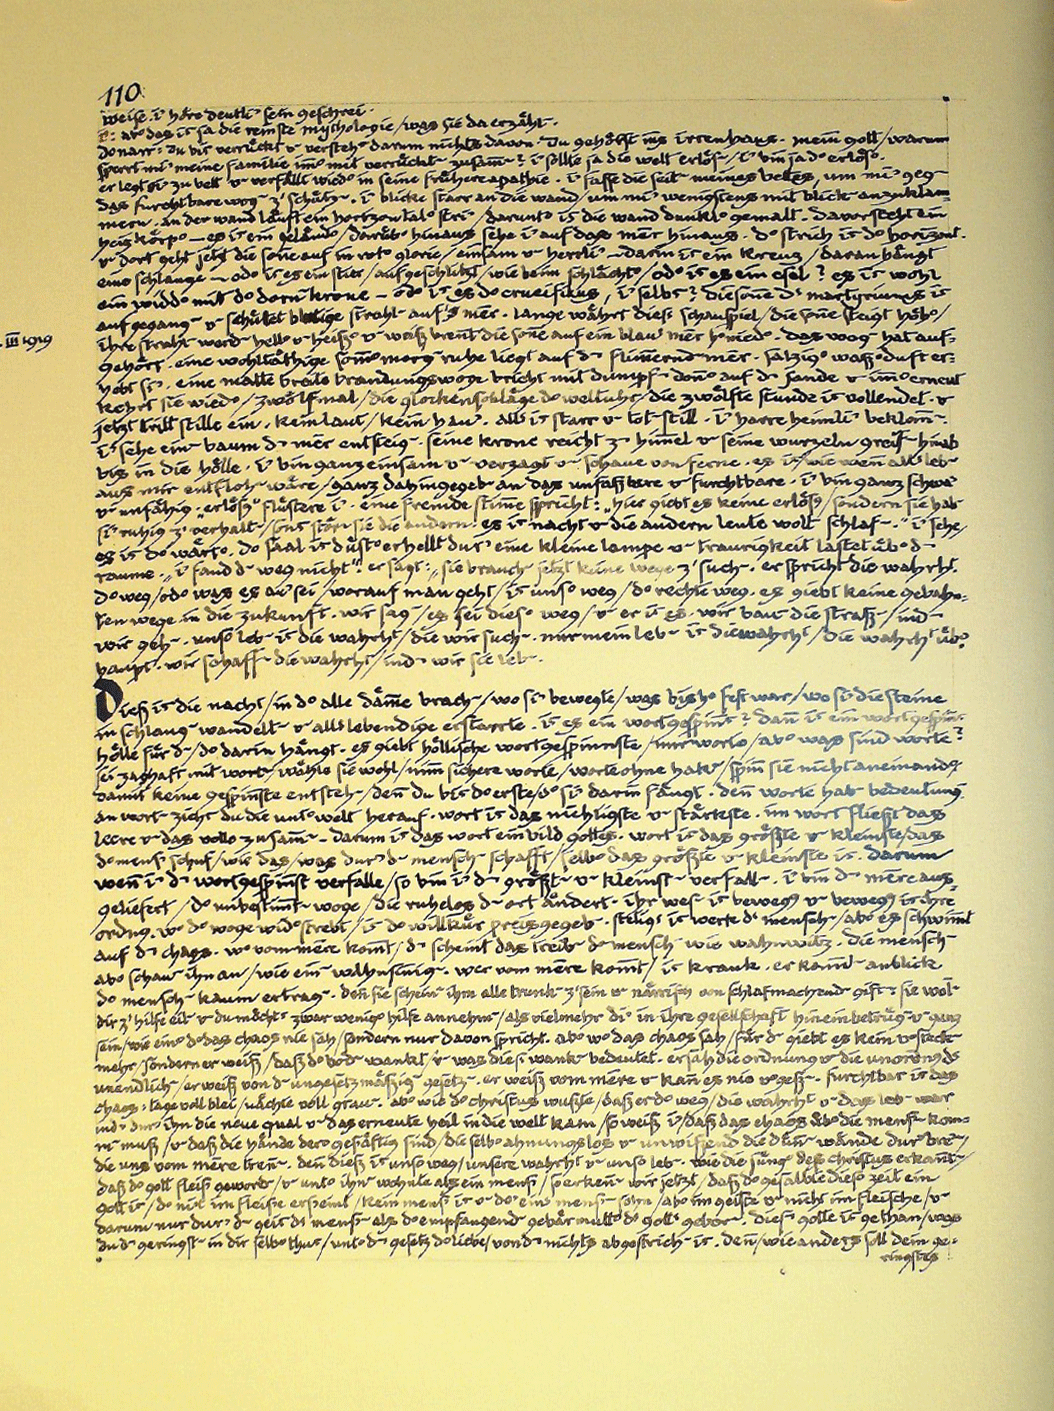 110
weise. i' höre deutli' sein geschrei.
P: abo das is ja die reinste mythologie/was sie da erzählt.
do narr: du bis verrückt u verstehs darum nichts davon. Du gehörst ins irrenhaus. mein gott/warum
sperrt mi' meine familie imo mit verrückt zusam? i' sollte ja die welt erlös/i' bin ja do erlöso.
er legt si' zu bett u verfällt wiedo in seine frühere apathie. i' fasse die seit meines bettes, um mi' geg
das furchtbare wog z' schütz. i' blicke starr an die wand/um mi' wenigstens mit blick anzuklam
mern. an der wand läuft ein horizontalo stri'/darunto is die wand dunklo gemalt. davor steht ein
heizkörpo – es is ein geländo/darübo hinaus sehe i' auf das mer hinaus. do strich is do horizont.
u dort geht jetzt die sone auf in roto glorie/einsam u herrli' – darin is ein kreuz/daran hängt
eine schlange – odo is es ein stier/aufgeschlitzt/wie beim schlächto/odo is es ein esel? es is wohl
ein widdo mit do dornkrone – odo is es do crucifixus, i' selbs? die sone ds martyriums is
aufgegang u schüttet blutige strahl auf's mer. lange währt dies schauspiel/die sone steigt höho/
III 1919
ihre strahl werd hello u heißo u wass brent die sone auf ein blau mer hnieedo. das wog hat auf-
gehört. eine wohlthätige somo morg ruhe liegt auf d flimernd mer. salzigo wasso duft er-
hebt si'. eine matte breite brandungswoge bricht mit dumpf dono auf d sande u imo erneut
kehrt sie wiedo/zwölfmal/die glockenschläge do weltuhr/die zwölfte stunde is vollendet. u
jetzt tritt stille ein. kein laut/kein hau'. all is starr u tot-still. i' harre heimli' beklom.
i' sehe ein baum d mer entsteig. seine krone reicht z' himel u seine wurzeln greif hinab
bis in die hölle. i' bin ganz einsam u verzagt u schaue von ferne. es is/wie wen alls leb
aus mir entfloh wäre/ganz dahingegeb an das unfassbare u furchtbare. i' bin ganz schwa'
u unfähig. „erlösg" flüstere i'. eine fremde stime spricht: „hier giebt es keine erlösg/sondern sie hab
si' ruhig z' verhalt/sons störn sie die andern. es is nacht u die andern leute woll schlaf –" i' sehe/
es is do wärto. do saal is düsto erhellt dur' eine kleine lampe u traurigkeit lastet übo d
raume. „i' fand d weg nicht". er sagt: „sie brauch jetzt keine wege z' such. er spricht die wahrht.
do weg/odo was es au' sei/worauf man geht/is unso weg/do rechte weg. es giebt keine gebahn-
ten wege in die zukunft. wir sag/es sei dieso weg/u er is es. wir bau die straß/ind
wir geh. unso leb is die wahrht/die wir such. nur mein leb is die wahrht/die wahrht übo-
haupt. wir schaff die wahrht/ind wir sie leb.
Dieß is die nacht/in do alle däme brach/wo si' bewegte/was bisho fest war/wo si' die steine
in schlang wandelt u alls lebendige erstarrte. is es ein wortgespinst? dan is ein wortgespinst
hölle für d/do darin hängt. es giebt höllische wortgespinnste/nur worte/abo was sind worte?
sei zaghaft mit wort/wähle sie wohl/nim sichere worte/worte ohne hak/spin sie nicht aneinando
damit keine gespinste entsteh/den du bis do erste/do si' darin fängt. den worte hab bedeutung.
an wort zieht du die unto welt herauf. wort is das nichtigste u stärkste. im wort fließt das
leere u das volle zusam – darum is das wort ein bild gottes. wort is das größte u kleinste/das
do mens' schuf/wie das/was dur' d mensch schafft/selbo das größte u kleinste is. darum
wen i' d wortgespinst verfalle/so bin i' d größt u kleinst verfall. i' bin d mere aus-
geliefert/do unbestimt woge/die ruhelos d ort ändert. ihr wes is bewegg u bewegg is ihre
ordng. w do woge widostrebt/is do willkür preisgegeb. stetigs is werk ds mensch/abo es schwimt
auf d chaos. w vom mere komt/d scheint das treib do mensch wie wahnwitz. die mensch
abo schau ihn an/wie ein wahnsinig. wer vom mere komt/is krank. er kann anblicke
do mensch kaum ertrag. den sie schein ihm alle trunk z' sein u närrisch von schlafmachend gift: sie woll
dir z' hilfe eil u du möchts zwar wenigo hilfe annehm/als vielmehr di' in ihre gesellschaft hineinbetrüg u ganz
sein/wie eino do das chaos nie sah/sondern nur davon spricht. abo w das chaos sah/für d giebt es kein vsteck
mehr/sondern er weiß/daß do bod wankt/u was dies wank bedeutet. er sah die ordnung u die unordng ds
unendlich/er weiß von d ungesetzmäßig gesetz. er weiß vom mere u kan es nie vgess. furchtbar is das
chaos: tage voll blei/nächte voll grau. abo wie do christus wußte/daß er do weg/die wahrht u das leb war
ind dur' ihn die neue qual u das erneute heil in die welt kam/so weiß i'/daß das chaos übo die mens kom-
m muß/u daß die hände dero geschäftig sind/die selbo ahnungslos u unwissend die dän wände dur'bre'/
die uns vom mere tren. den dieß is unso weg/unsere wahrht u unso leb. wie die jüng des christus erkant/
daß do gott fleis' geword u unto ihn wohnte als ein mens'/so erken wir jetzt/daß do gesalbte dieso zeit ein
gott is/do nit im fleische erscheint/kein mens' is u do ein mens' sohn/abo im geiste u nicht im fleische/u
darum nur dur' d geist ds mens' als do empfangend gebärmutto do gotts gebor. dies gotte is gethan/was
du d geringst in dir selbo thus/unto d gesetz do liebe/von d nichts abgestrich is. den/wie anders soll dein ge-
ringstes